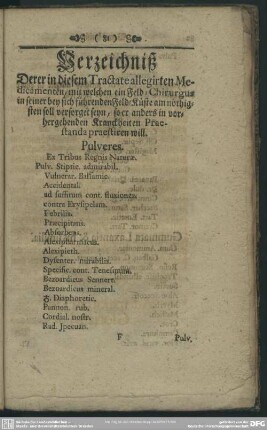 ( 81 )
Verzeichniß
Derer in diesem Tractate allegirten Me-
dicamenten, mit welchen ein Feld-Chirurgus
in seiner bey sich führenden Feld-Küste am nöthig-
sten soll versorget seyn, so er anders in vor-
hergehenden Kranckheiten Prae-
standa praestiren will.
Pulveres.
Ex Tribus Regnis Naturæ.
Pulv. Stiptic. admirabil.
Vulnerar.
Accidental.
ad suffitum cont. fluxiones.
contra Erysipelam.
Febrilis.
Præcipitans.
Absorbens.
Alexipharmacus.
Alexipieth.
Dysenter. mirabilis.
Specific. cont. Tenesmum.
Bezoardicus Sennert.
Bezoardicus mineral.
Diaphoretic.
rub.
Cordial. nostr.
Rad. Jpecuan.
F
Pulv.